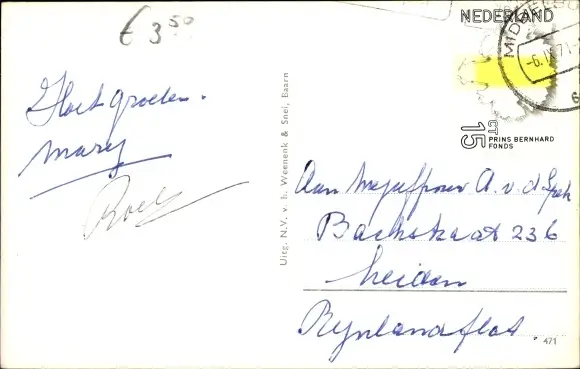 € 3.50
Hart. groeten.
Mary
Roel
Uitg. N.V. v. h. Weenenk & Snel, Baarn
NEDERLAND
MIDDELBU
-6.IX.71-
6
15 CT
PRINS BERNHARD
FONDS
Aan Mejuffrouw A. v. d. Spek
Bachstraat 236
Leiden
Rynlandflat.
471